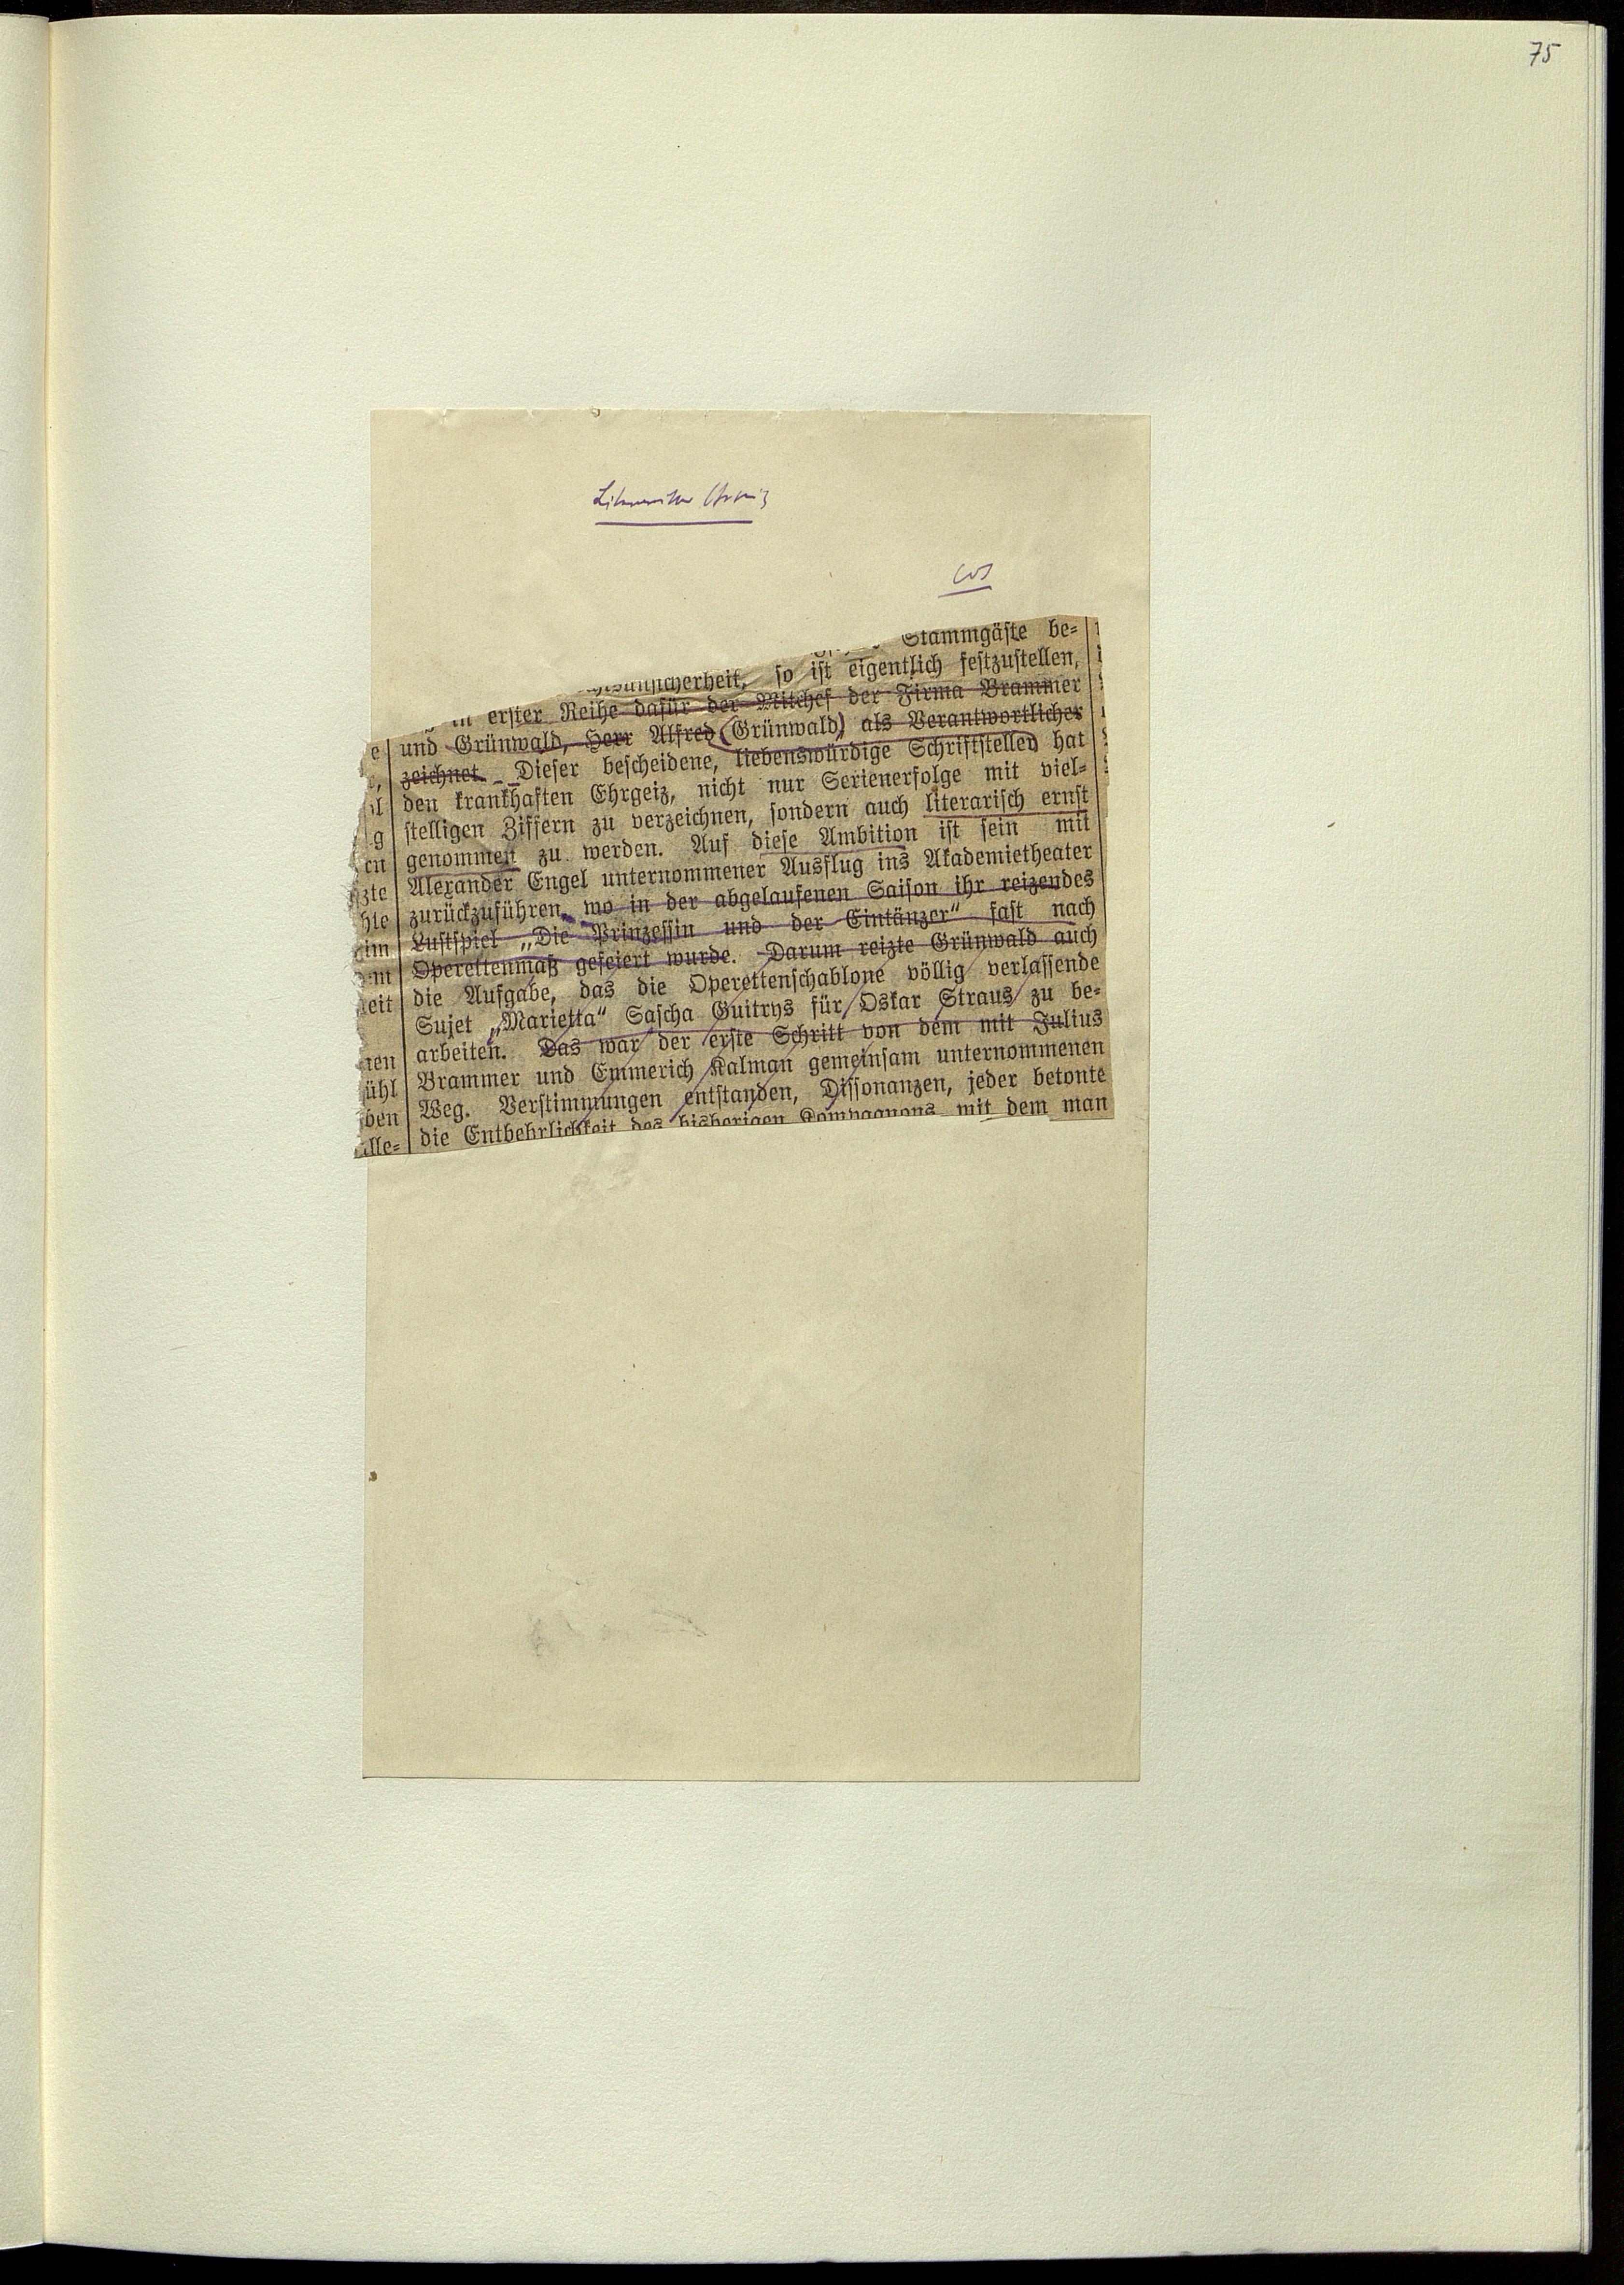 75
Stammgäste be-
so ist eigentlich festzustellen,
in erster Reihe dafür der Mitchef der Firma Brammer
und Grünwald, Herr Alfred (Grünwald) als Verantwortlicher
zeichnet. Dieser bescheidene, liebenswürdige Schriftsteller hat
den krankhaften Ehrgeiz, nicht nur Serienerfolge mit viel-
stelligen Ziffern zu verzeichnen, sondern auch literarisch ernst
genommen zu werden. Auf diese Ambition ist sein mit
Alexander Engel unternommener Ausflug ins Akademietheater
zurückzuführen, wo in der abgelaufenen Saison ihr reizendes
Lustspiel „Die Prinzessin und der Eintänzer“ fast nach
Operettenmaß gefeiert wurde. Darum reizte Grünwald auch
die Aufgabe, das die Operettenschablone völlig verlassende
Sujet „Marietta“ Sascha Guitrys für Oskar Straus zu be-
arbeiten. Das war der erste Schritt von dem mit Julius
Brammer und Emmerich Kalman gemeinsam unternommenen
Weg. Verstimmungen entstanden, Dissonanzen, jeder betonte
die Entbehrlichkeit des bisherigen Kompagnons, mit dem man
e
g
en
zte
hte
im
eit
nen
ühl
ben
lle-